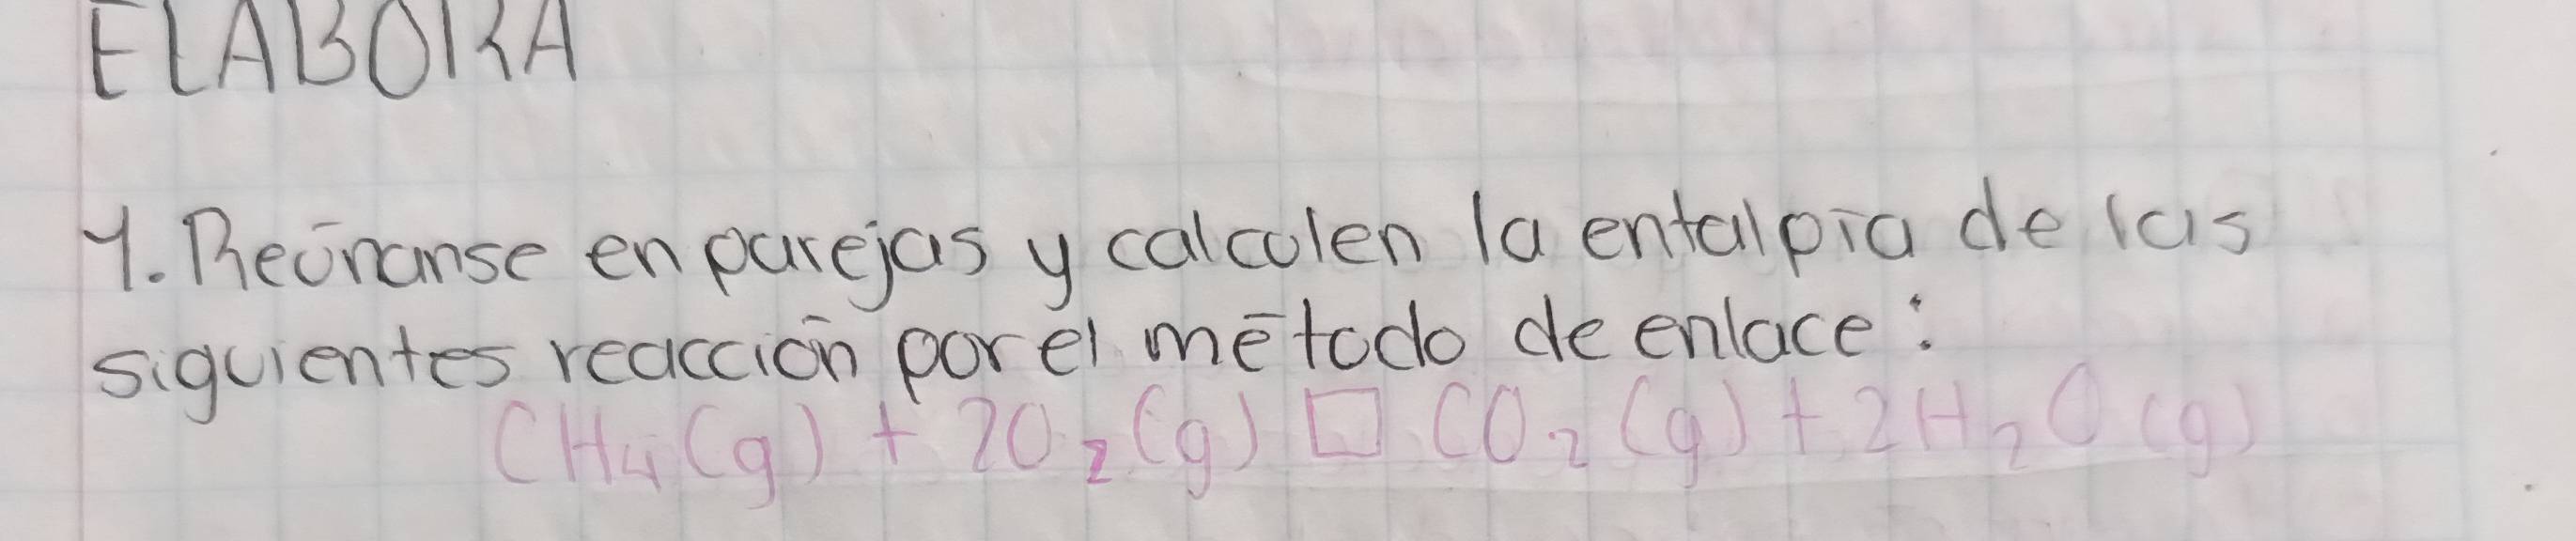 ELABORA
1. Reúnanse en parejas y calculen la entalpía de las
siguientes reacción por el método de enlace:
CH₄(g) + 2O₂(g) □ CO₂(g) + 2H₂O(g)